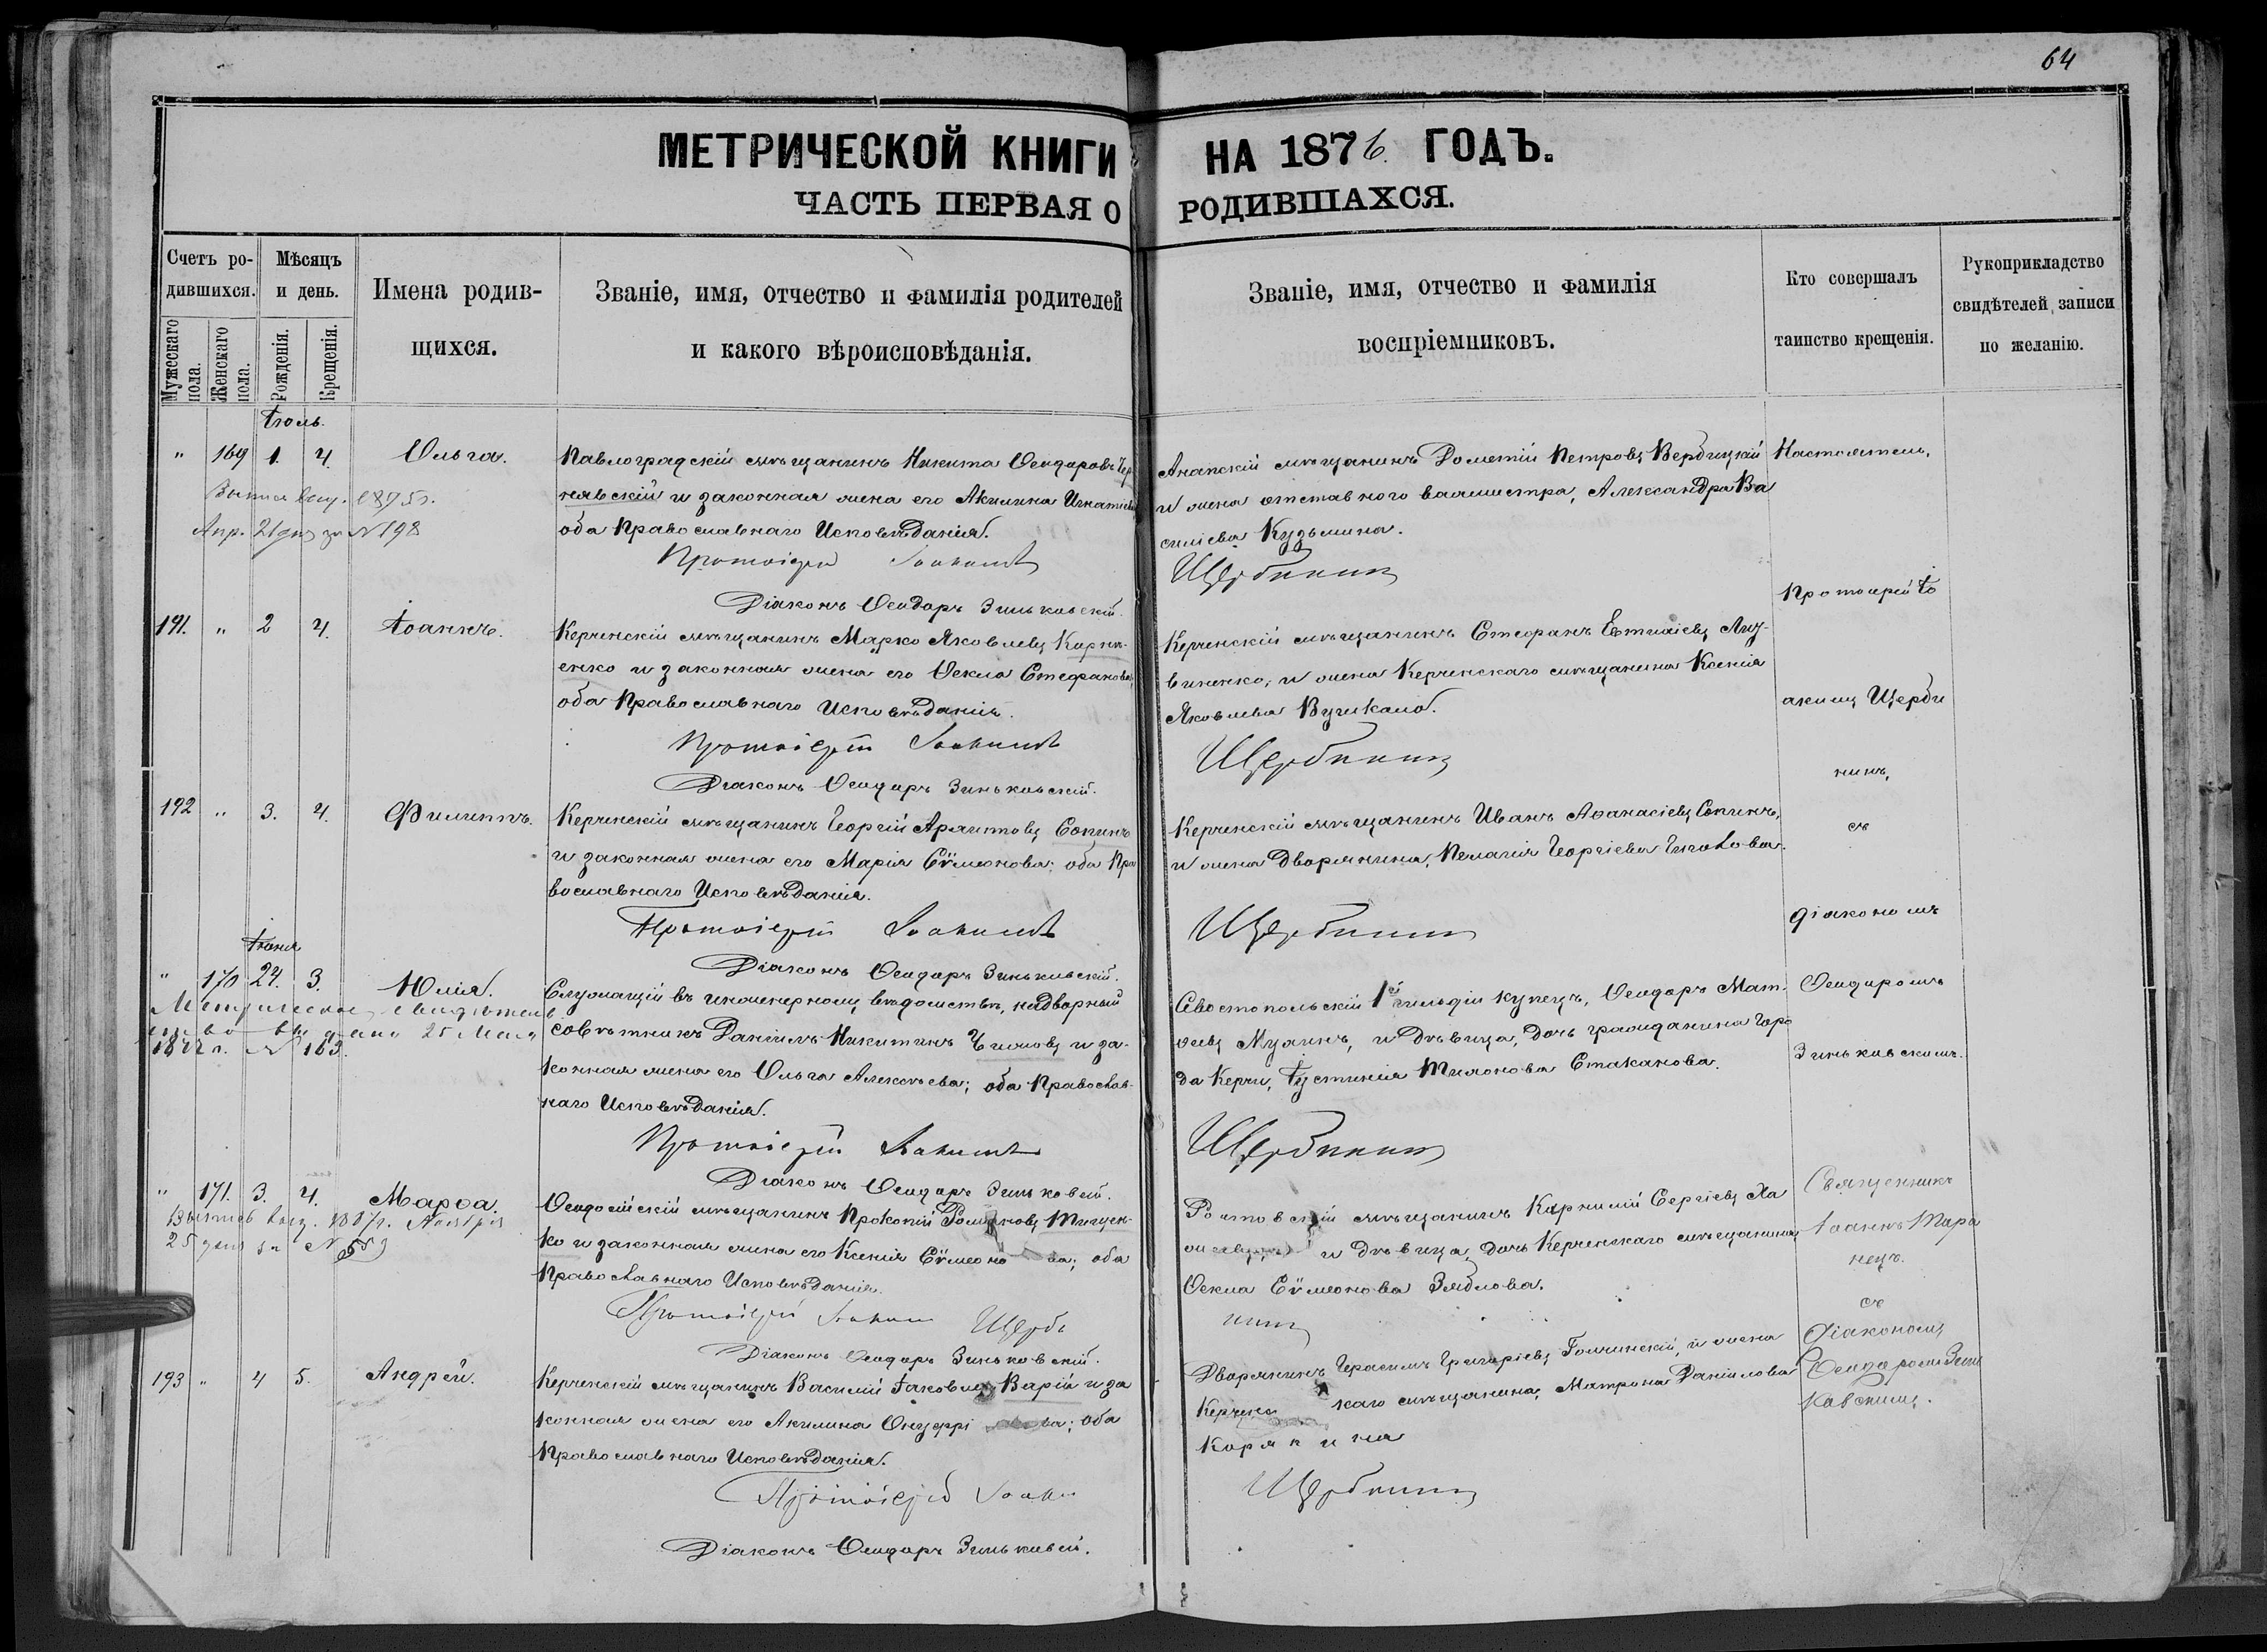 64
МЕТРИЧЕСКОЙ КНИГИ НА 1876 ГОДЪ.
ЧАСТЬ ПЕРВАЯ О РОДИВШАХСЯ.
Счетъ ро-
дившихся.
Мужескаго пола.
Женскаго пола.
Мѣсяцъ
и день.
Рожденія.
Крещенія.
Имена родив-
щихся.
Званіе, имя, отчество и фамилія родителей
и какого вѣроисповѣданія.
Званіе, имя, отчество и фамилія
воспріемниковъ.
Кто совершалъ
таинство крещенія.
Рукоприкладство
свидѣтелей записи
по желанію.
Іюль.
" 169 1. 4. Ольга.
1895г.
Апр. 21 дня за № 198
Павлоградскій мѣщанинъ Никита Ѳеодоровъ Чер
нявскій и законная жена его Акилина Игнатіева
оба Православнаго Исповѣданія.
Протоіерей Іоакимъ
Діаконъ Ѳеодоръ Зиньковскій.
Анапскій мѣщанинъ Дометій Петровъ Вербицкій
и жена отставного вахмистра, Александра Ва
силіева Кузьмина.
Щербининъ
Настоятель,
Протоіерей Іо
акимъ Щерби
нинъ,
съ
діакономъ
Ѳеодоромъ
Зиньковскимъ.
191. " 2 4. Іоаннъ.
Керченскій мѣщанинъ Марко Яковлевъ Карпи-
енко и законная жена его Ѳекла Стефанова,
оба Православнаго Исповѣданія.
Протоіерей Іоакимъ
Діаконъ Ѳеодоръ Зиньковскій.
Керченскій мѣщанинъ Стефанъ Евтихіевъ Лит-
виненко, и жена Керченскаго мѣщанина Ксенія
Яковлева
Щербининъ
192 " 3. 4. Филиппъ.
Керченскій мѣщанинъ Георгій Архиповъ Сопинъ
и законная жена его Марія Сѵмеонова; оба Пра
вославнаго Исповѣданія.
Протоіерей Іоакимъ
Діаконъ Ѳеодоръ Зиньковскій.
Керченскій мѣщанинъ Иванъ Аѳанасіевъ Сопинъ,
и жена дворянина, Пелагія Георгіева
Щербининъ
Іюня
" 170 24. 3. Юлія.
Метрическое свидѣтель
ство дано 25 Мая
№ 163.
Служащій въ инженерномъ вѣдомствѣ, надворный
совѣтникъ Даніилъ Никитинъ Чижовъ и за-
конная жена его Ольга Алексѣева; оба Православ-
наго Исповѣданія.
Протоіерей Іоакимъ
Діаконъ Ѳеодоръ Зиньковскій.
Севостопольскій 1й гильдіи купецъ, Ѳеодоръ Мат-
ѳіевъ и дѣвица, дочь гражданина горо
да Керчи, Іустинія Тихонова Стаканова.
Щербининъ
" 171. 3. 4. Марѳа.
Ноября
25 дня за № 559
Ѳеодосійскій мѣщанинъ Прокопій Романовъ Тищен-
ко и законная жена его Ксенія Сѵмеонова; оба
Православнаго Исповѣданія.
Протоіерей Іоакимъ Щерби
нинъ
Діаконъ Ѳеодоръ Зиньковскій.
Ростовскій мѣщанинъ Карнилій Сергіевъ
и дѣвица, дочь Керченскаго мѣщанина,
Ѳекла Сѵмеонова Зяблова.
Священникъ
Іоаннъ Тара
нецъ.
съ
Діакономъ
Ѳеодоромъ Зинь
ковскимъ.
193 " 4 5. Андрей.
Керченскій мѣщанинъ Василій Іаковлевъ Варій и за
конная жена его Акилина Онуфріева; оба
Православнаго Исповѣданія.
Протоіерей Іоаки
Діаконъ Ѳеодоръ Зиньковскій.
Дворянинъ Герасимъ Григоріевъ и жена
Керченскаго мѣщанина, Матрона Даніилова
Корякина
Щербининъ